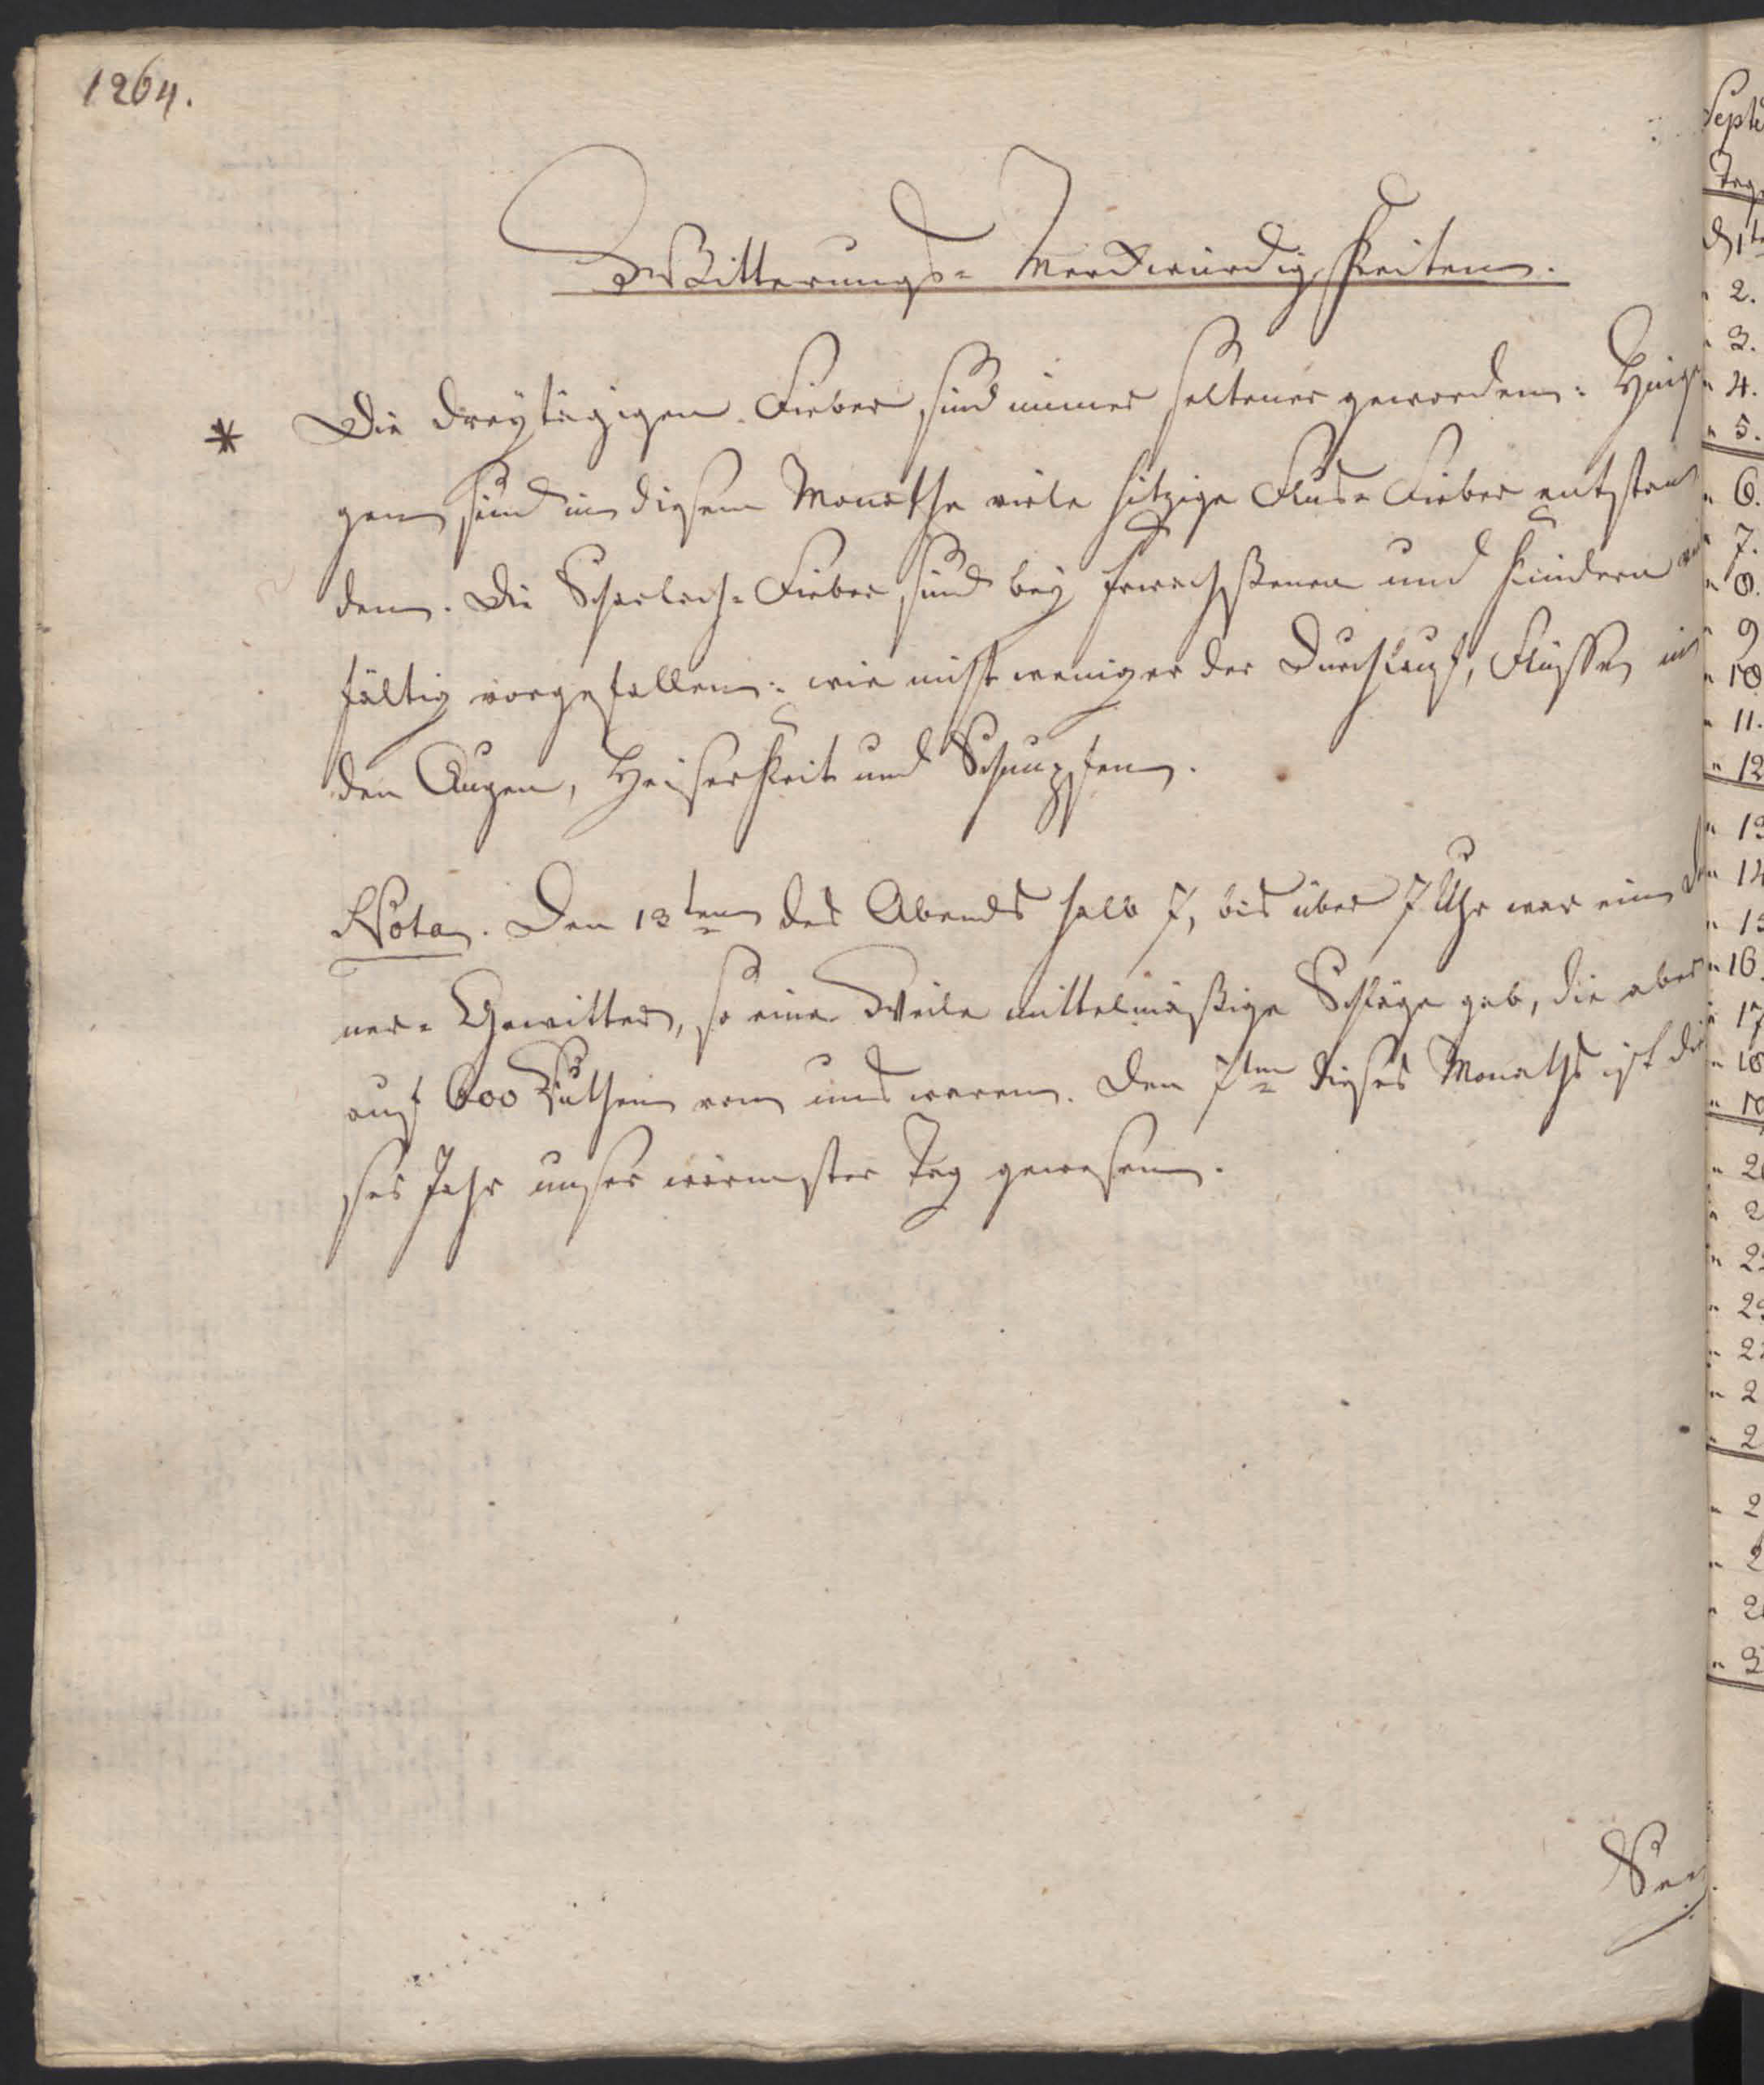 1264.
Witterungs= Merckwürdigkeiten.
* Die dreytägigen Fieber sind immer seltener geworden: Hinge
gen sind in diesem Monathe viele hitzige Flus= Fieber entstan
den. Die Scharlach= Fieber sind bey Erwachßenen und Kindern
fältig vorgefallen: wie nicht weniger der Durchlauf, Flüsse in
den Augen, Heiserkeit und Schnupfen.
Nota. Den 13ten des Abends halb 7, bis über 7 Uhr war ein
ner= Gewitter, so eine Weile mittelmäßige Schläge gab, die aber
auf 600 Ruthen von uns waren. Den 7ten dieses Monaths ist die
ses Jahr unser wärmster Tag gewesen.
Septe
Tag
d 1te
" 2.
" 3.
" 4.
" 5.
" 6.
" 7.
" 8.
" 9
" 10
" 11.
" 12
" 13
" 14
" 15
" 16.
" 17
" 18
" 19